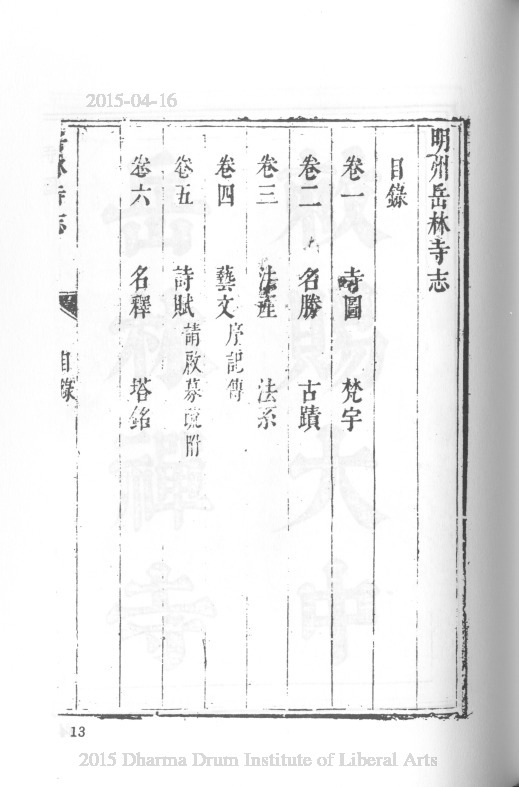 2015-04-16
明州岳林寺志
目錄
卷一 寺圖 梵宇
卷二 名勝 古蹟
卷三 法產 法系
卷四 藝文 序記傳
卷五 詩賦 請啟募疏附
卷六 名釋 塔銘
岳林寺志 目錄
13
2015 Dharma Drum Institute of Liberal Arts